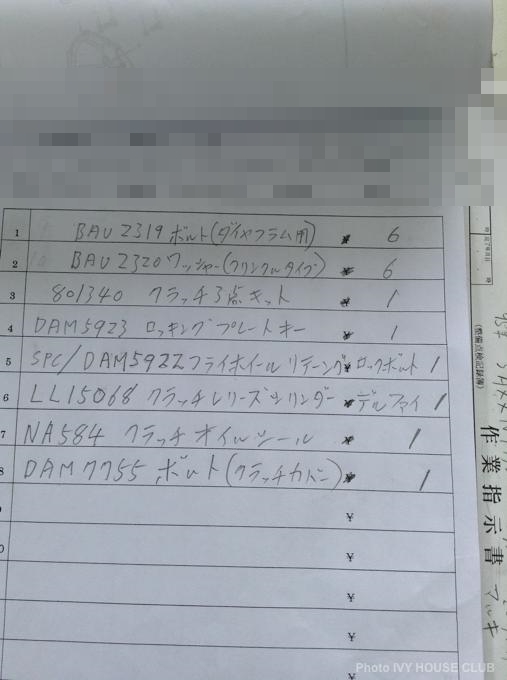 1 BAU 2319 ボルト(ダイヤフラム用) 6
2 BAU 2320 ワッシャー(クリンクルタイプ) 6
3 801340 クラッチ3点キット 1
4 DAM5923 ロッキングプレートキー 1
5 SPC/DAM5922フライホイールリテーニングロックボルト 1
6 LL15068 クラッチレリーズシリンダー デルファイ 1
7 NA584 クラッチオイルシール 1
8 DAM7755 ボルト(クラッチカバー) 1
¥
¥
¥
¥
¥
(整備点検記録簿)
作業指示書
Photo IVY HOUSE CLUB